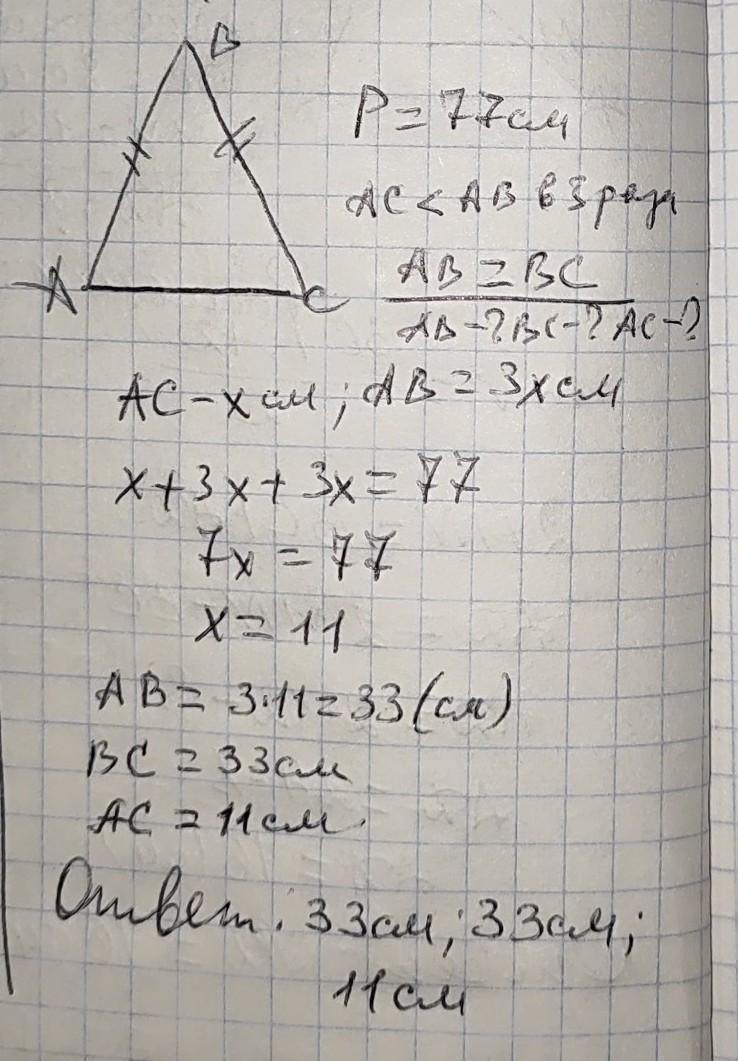 B
P = 77см
AC < AB в 3 раза
A
C
AB = BC
AB-? BC-? AC-?
AC - x см; AB = 3x см
x + 3x + 3x = 77
7x = 77
x = 11
AB = 3·11 = 33 (см)
BC = 33 см
AC = 11 см.
Ответ: 33 см; 33 см;
11 см